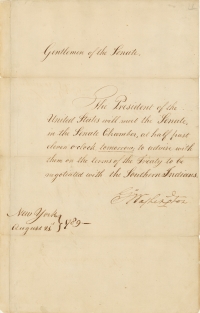 Gentlemen of the Senate.
The President of the
United States will meet the Senate,
in the Senate Chamber, at half past
eleven o'clock, tomorrow, to advise with
them on the terms of the Treaty to be
negotiated with the Southern Indians.
G. Washington
New York
August 21st } 1789—